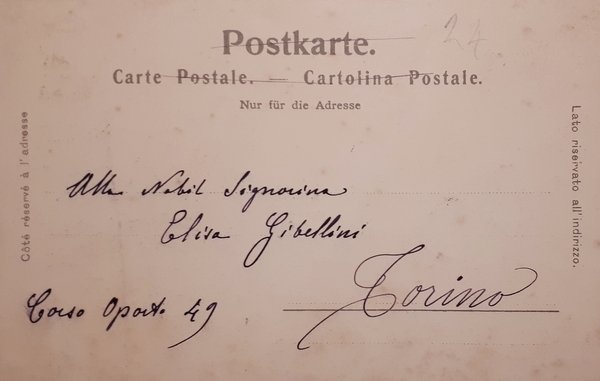 24
Postkarte.
Carte Postale. — Cartolina Postale.
Nur für die Adresse
Côté réservé à l'adresse
Lato riservato all'indirizzo.
Alla Nobil Signorina
Elisa Gibellini
Torino
Corso Oporto 49